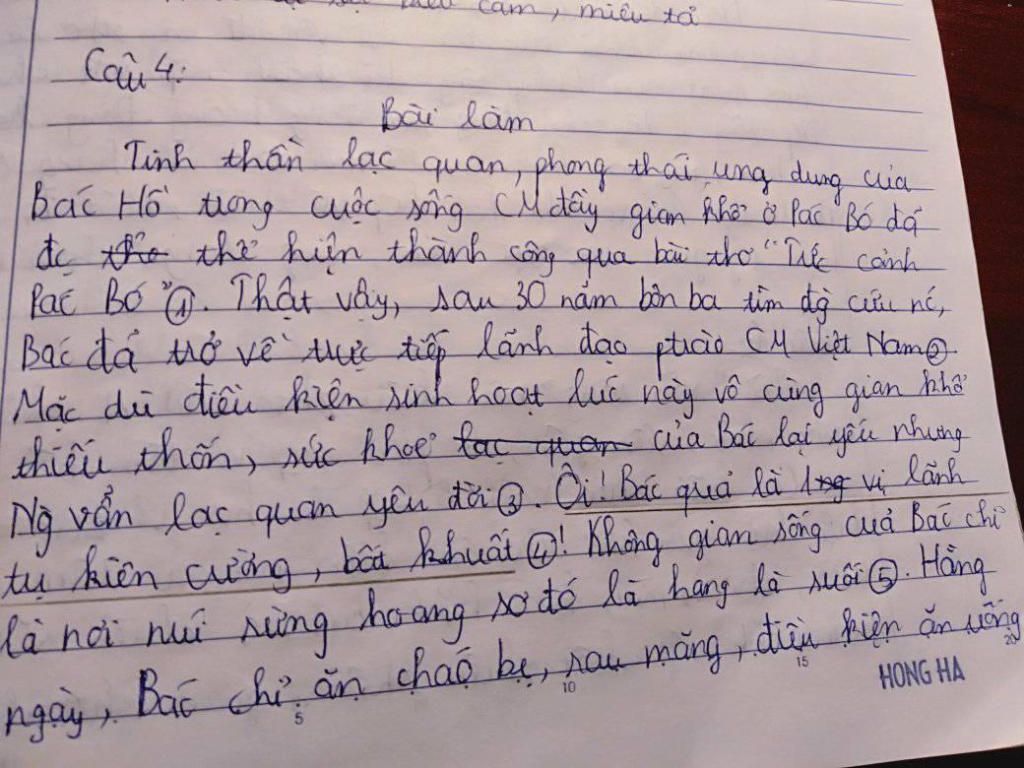 cảm, miêu tả
Câu 4:
Bài làm
Tinh thần lạc quan, phong thái ung dung của
Bác Hồ trong cuộc sống CM đầy gian khổ ở Pác Bó đã
đc thể hiện thành công qua bài thơ "Tức cảnh
Pác Bó" ①. Thật vậy, sau 30 năm bôn ba tìm đg cứu nc,
Bác đã trở về trực tiếp lãnh đạo ptrào CM Việt Nam ②.
Mặc dù điều kiện sinh hoạt lúc này vô cùng gian khổ
thiếu thốn, sức khoẻ lạc quan của Bác lại yếu nhưng
Ng vẫn lạc quan yêu đời ③. Ôi! Bác quả là 1 vị lãnh
tụ kiên cường, bất khuất ④! Không gian sống của Bác chỉ
là nơi núi rừng hoang sơ đó là hang là suối ⑤. Hằng
ngày, Bác chỉ ăn cháo bẹ, rau măng, điều kiện ăn uống
HONG HA
5 10 15 20